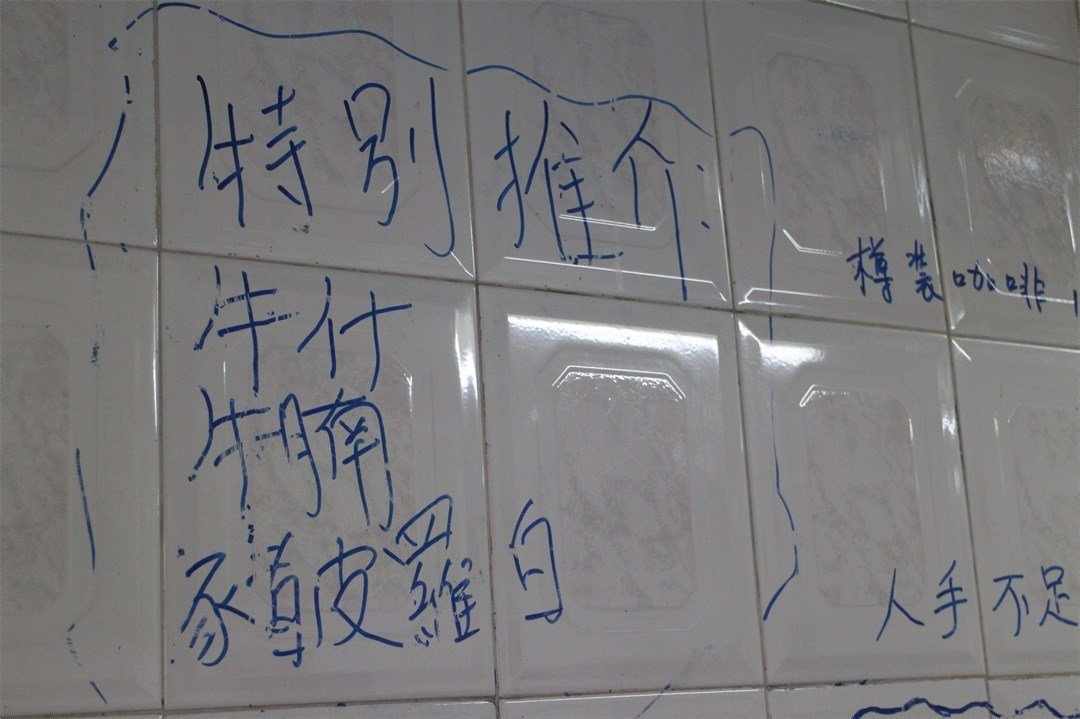 特別推介:
牛什
牛腩
豬皮羅白
樽装咖啡
人手不足